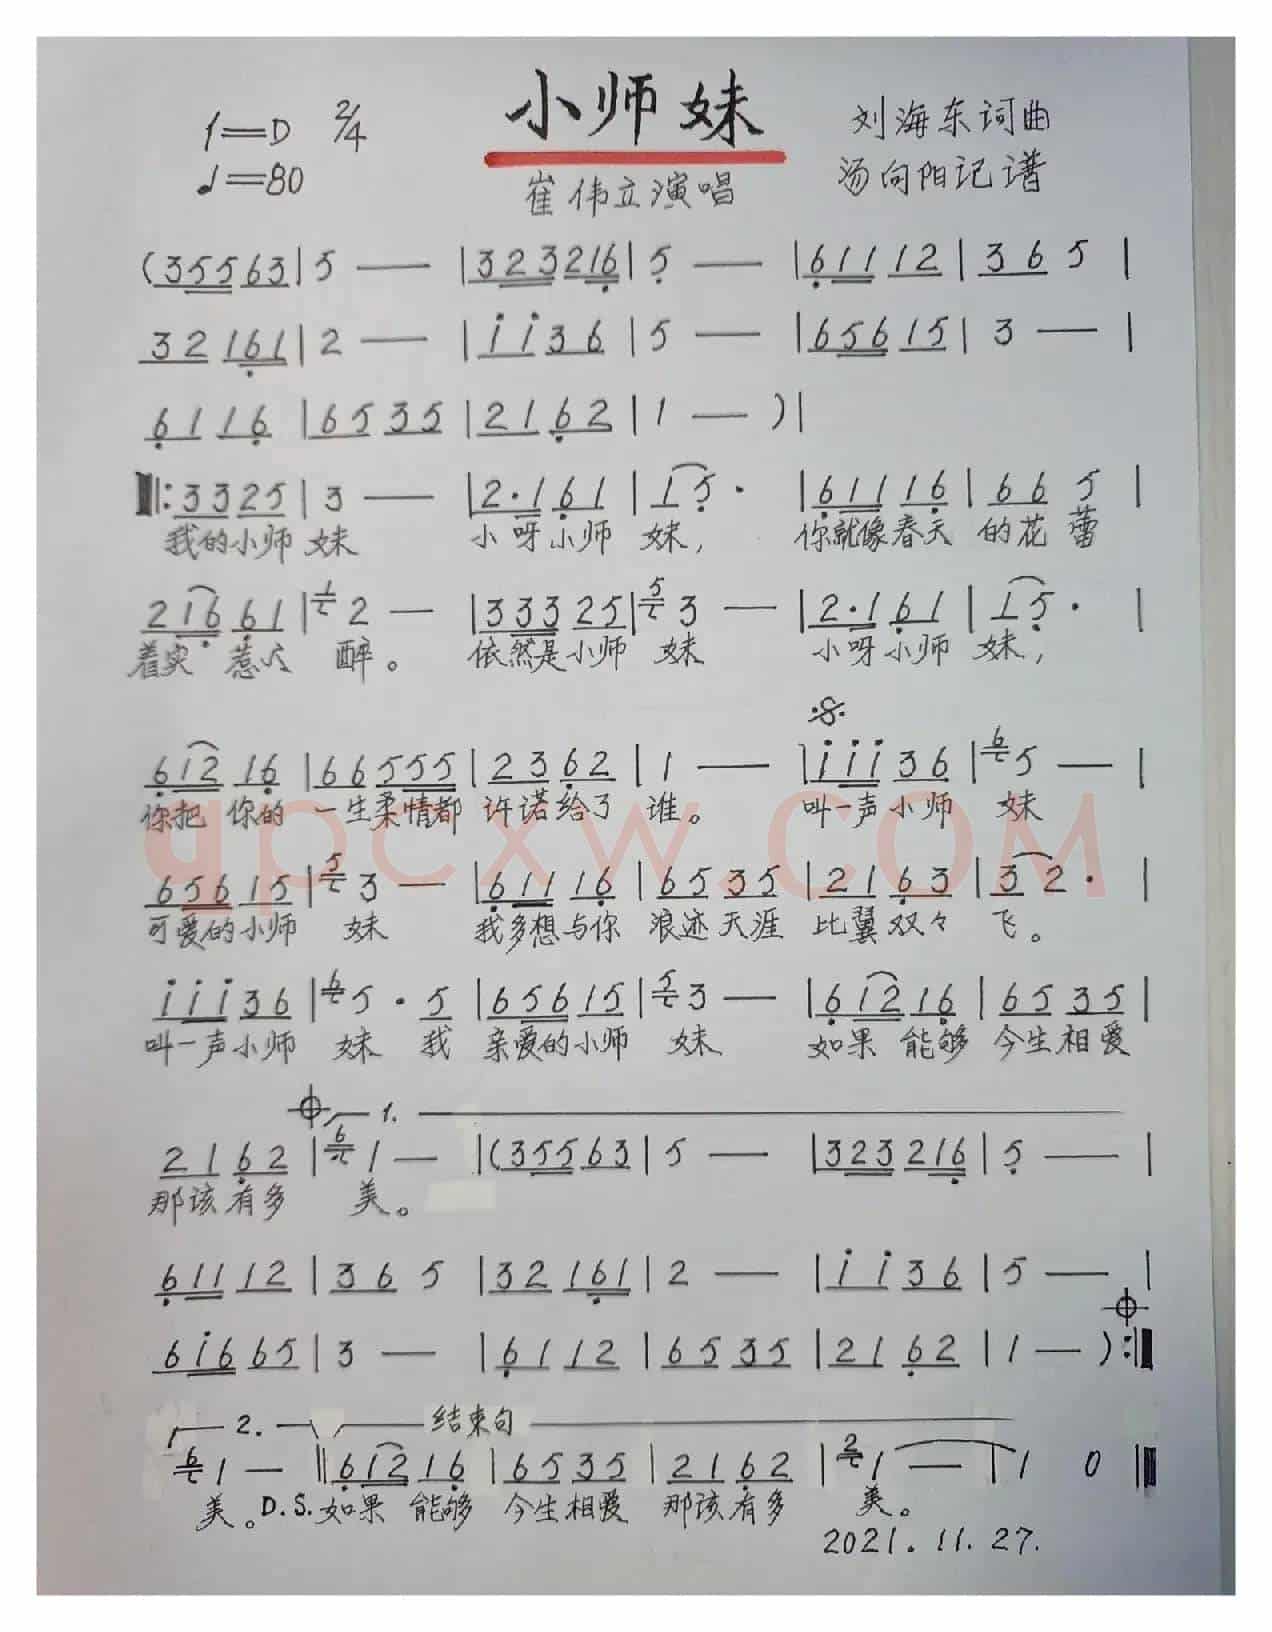 小师妹
1=D 2/4
♩=80
刘海东词曲
汤向阳记谱
崔伟立演唱
(35563|5 —|323216|5 —|61112|365|
32161|2 —|i i36|5 —|65615|3 —|
6116|6535|2162|1 —)|
‖:3325|3 —|2·161|15·|61116|665|
我的小师妹 小呀小师妹, 你就像春天的花蕾
21661|1 2 —|33325|5 3 —|2·161|15·|
着实惹人醉。 依然是小师妹 小呀小师妹,
61216|66555|2362|1 —|iii36|6 5 —|
你把你的一生柔情都许诺给了谁。 叫一声小师妹
65615|5 3 —|61116|6535|2163|32·|
可爱的小师妹 我多想与你浪迹天涯比翼双々飞。
iii36|6 5·5|65615|5 3 —|61216|6535|
叫一声小师妹 我亲爱的小师妹 如果能够今生相爱
1.
2162|6 1 —|(35563|5 —|323216|5 —|
那该有多美。
61112|365|32161|2 —|i i36|5 —|
6i665|3 —|6112|6535|2162|1 —):‖
2. 结束句
6 1 —‖61216|6535|2162|2 1 —|1 0‖
美。D.S.如果能够今生相爱那该有多美。
2021.11.27.
qpcxw.com